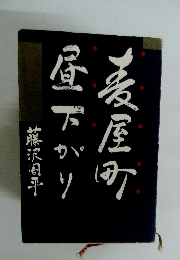 麦屋町
昼下がり
藤沢周平